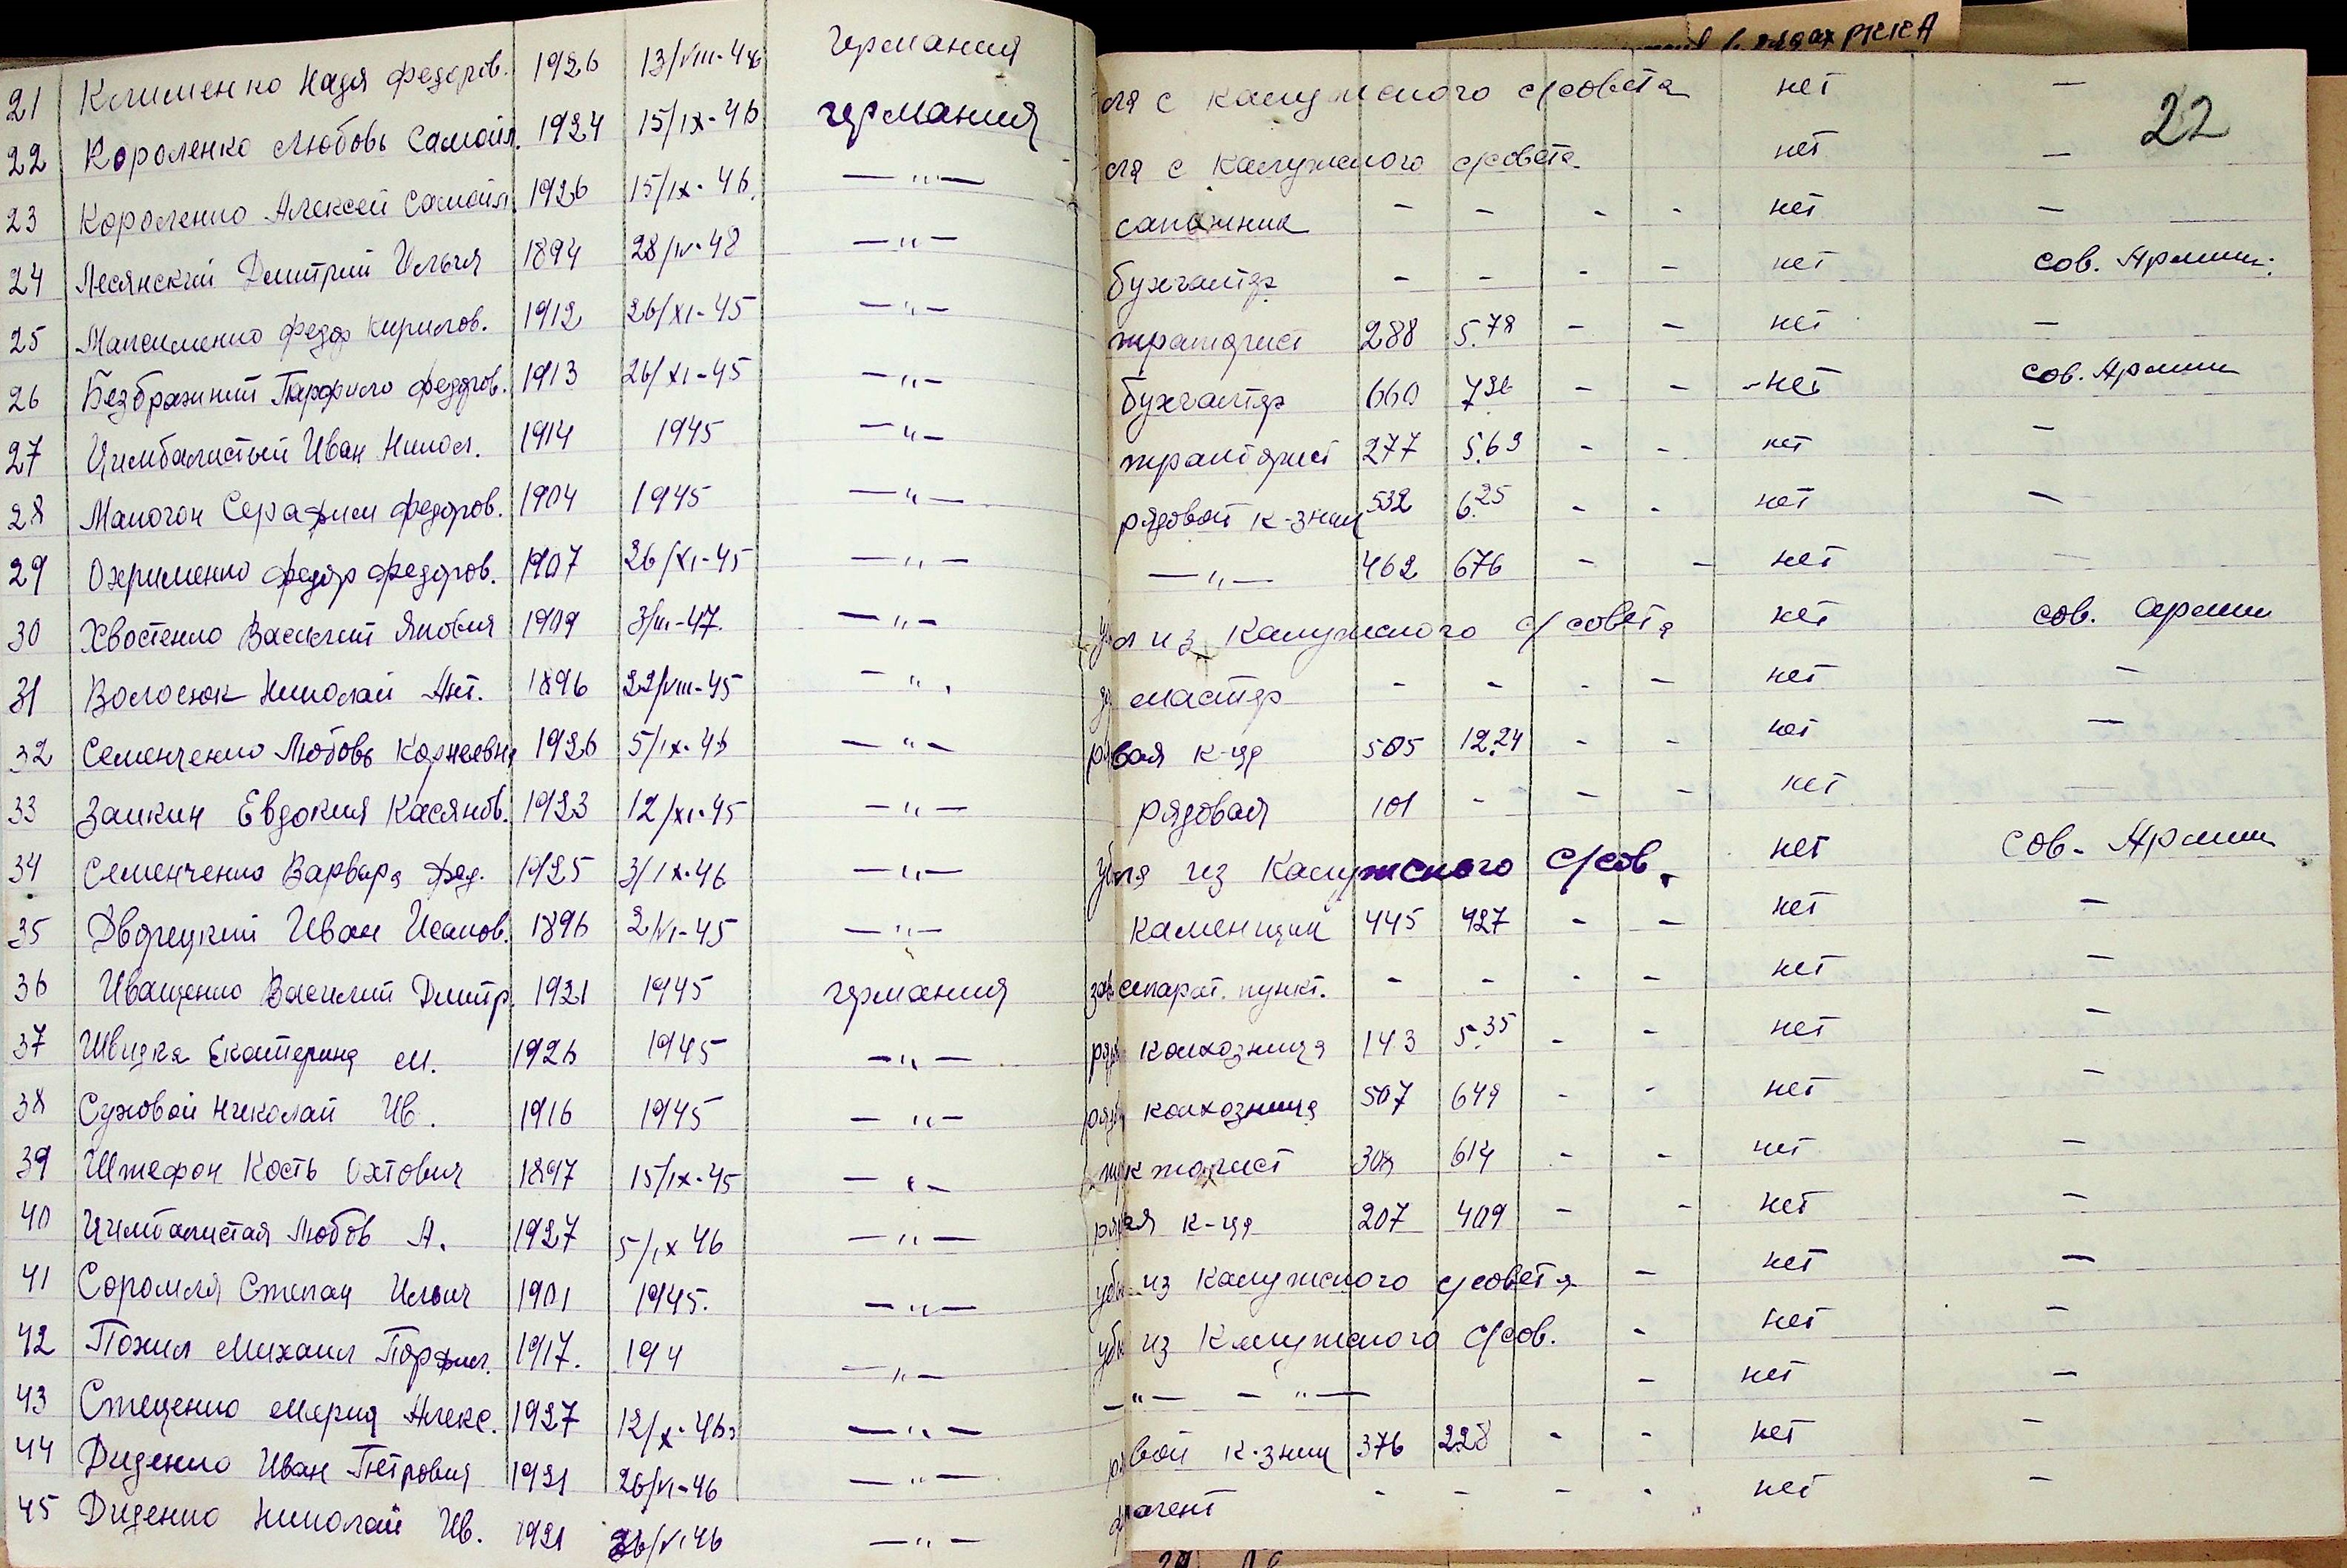 в рядах РККА
22
21 Клименко Надя Федоров. 1926 13/VIII-46 Германия ля с Калужского с/совета нет —
22 Короленко Любовь Самойл. 1924 15/IX-46 Германия ля с Калужского с/совета нет —
23 Короленко Алексей Самойл. 1926 15/IX-46. —"— сапожник - - - - нет —
24 Лесянский Дмитрий Ильич 1894 28/IV-48 —"— бухгалтер - - - - нет сов. Армии.
25 Максименко Федор Кирилов. 1912 26/XI-45 —"— тракторист 288 5.78 - - нет —
26 Безбражний Парфило Федоров. 1913 26/XI-45 —"— бухгалтер 660 736 - - нет сов. Армии
27 Цимбалистый Иван Никол. 1914 1945 —"— тракторист 277 5.63 - - нет —
28 Малогон Серафим Федоров. 1904 1945 —"— рядовой к-зник 532 6.25 - - нет —
29 Охрименко Федор Федоров. 1907 26/XI-45 —"— —"— 462 676 - - нет —
30 Хвостенко Василий Якович 1909 3/III-47. —"— л из Калужского с/совета нет сов. армии
31 Волосюк Николай Ант. 1896 22/VIII-45 —"— мастер - - - - нет —
32 Семенченко Любовь Корнеевна 1926 5/IX-46 —"— вая к-ца 505 12.24 - - нет —
33 Заикин Евдокия Касянов. 1923 12/XI-45 —"— рядовая 101 - - - нет —
34 Семенченко Варвара Фед. 1925 3/IX-46 —"— ля из Калужского с/сов. нет сов. Армии
35 Дворецкий Иван Исаков. 1896 2/VI-45 —"— каменщик 445 427 - - нет —
36 Иващенко Василий Дмитр. 1921 1945 Германия зав сепарат. пункт. - - - - нет —
37 Швидка Екатерина М. 1926 1945 —"— ряд колхозница 143 5.35 - - нет —
38 Суховой Николай Ив. 1916 1945 —"— ряд колхозница 507 649 - - нет —
39 Штефон Кость Охтович 1897 15/IX-45 —"— тракторист 308 614 - - нет —
40 Цимбалистая Любов А. 1927 5/IX 46 —"— ря ая к-ца 207 409 - - нет —
41 Соромля Степан Ильич 1901 1945. —"— убы из Калужского с/совета - нет —
42 Пожил Михаил Порфил. 1917. 194 —"— убы из Калужского с/сов. - нет —
43 Стеценко Мария Алекс. 1927 12/X-46г —"— —"— —"— - нет —
44 Диденко Иван Петрович 1921 26/VI-46 —"— вой к-зник 376 228 - - нет —
45 Диденко Николай Ив. 1921 26/V-46 —"— агент - - - - нет —